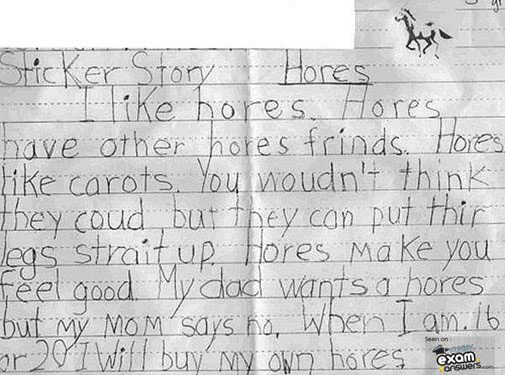 Sticker Story Hores
I like hores. Hores
have other hores frinds. Hores
like carots. You woudn't think
they coud, but they can put thir
legs strait up. Hores make you
feel good. My dad wants a hores
but my mom says no. When I am. 16
or 20 I will buy my own hores.
Seen on:
exam
answers.com